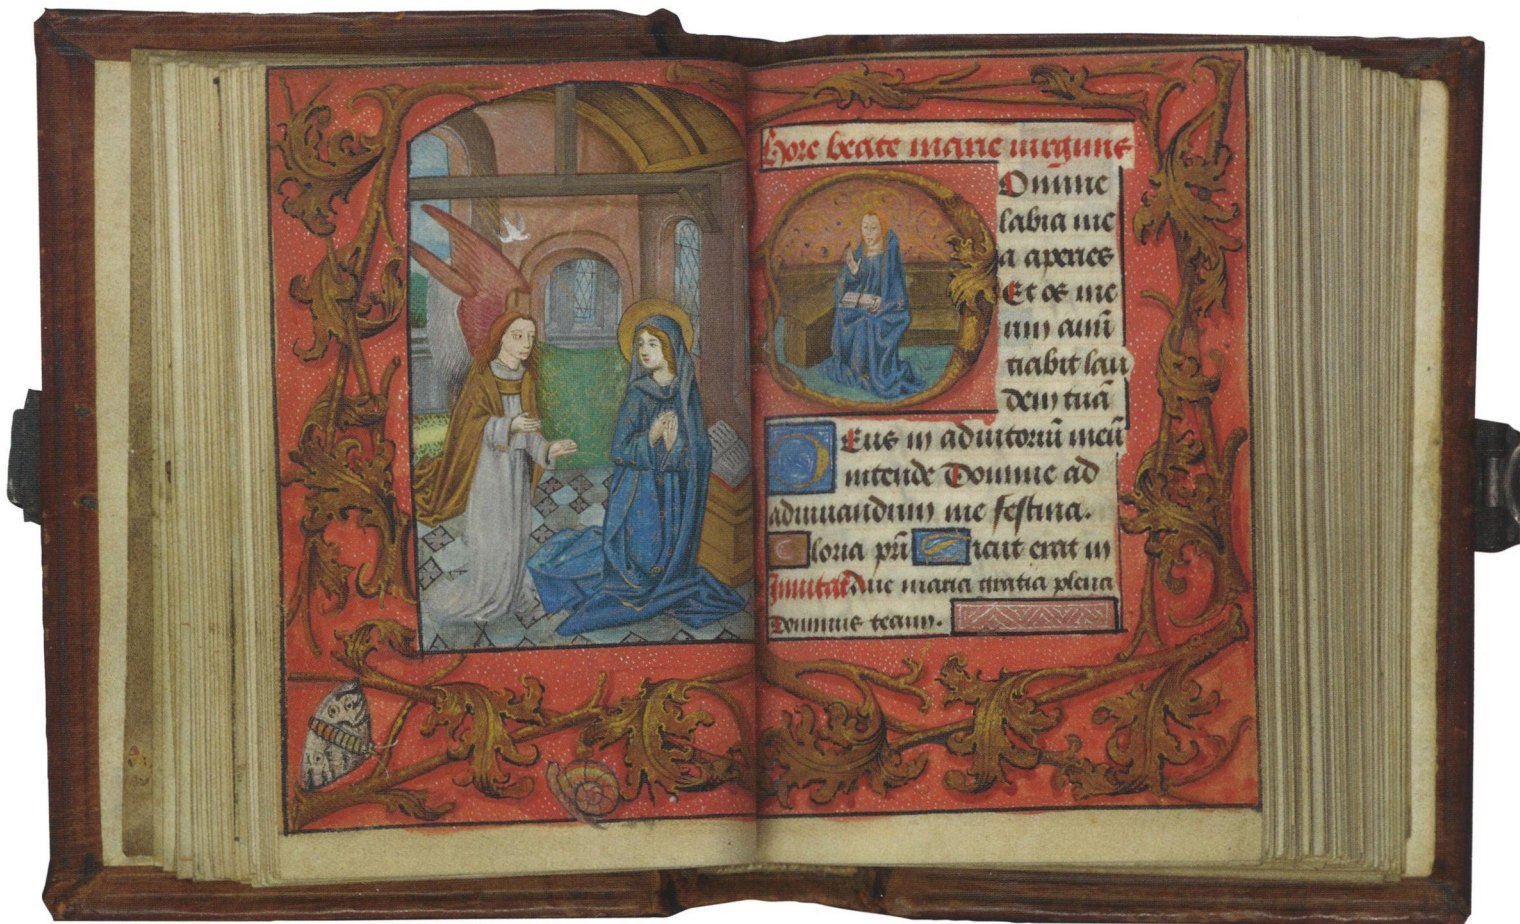 Hore beate marie virginis
Omine
labia me
a aperies
Et os me
um anũ
tiabit lau
dem tuã
Eus in adiutoriũ meũ
intende Domine ad
adiuuandum me festina.
Gloria pri Sicut erat in
Inuitat Aue maria gratia plena
Dominus tecum.